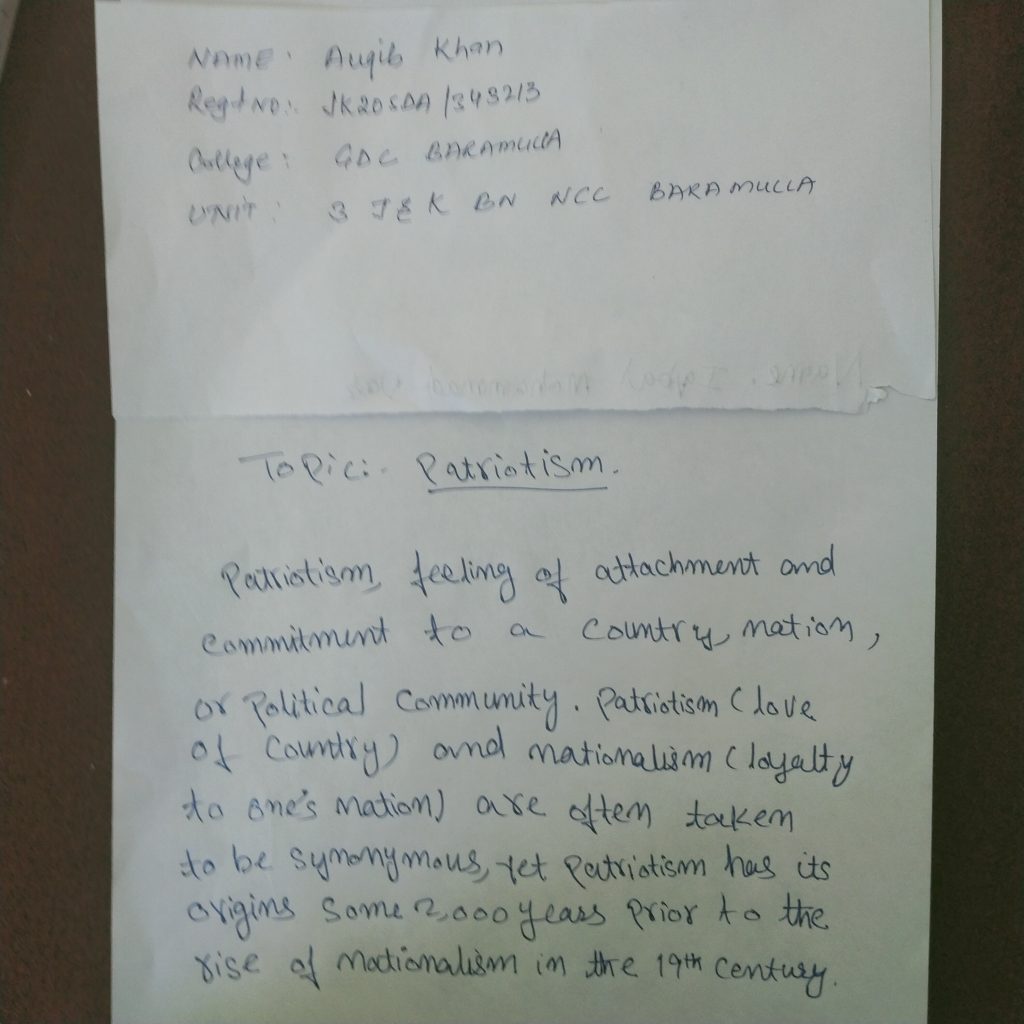 NAME: Auqib Khan
Regd No:. JK20SDA/343213
College: GDC BARAMULLA
UNIT: 3 J&K BN NCC BARAMULLA
Topic:- Patriotism.
Patriotism, feeling of attachment and
commitment to a country, nation,
or political community. Patriotism (love
of country) and nationalism (loyalty
to one's nation) are often taken
to be synonymous, yet patriotism has its
origins some 2,000 years prior to the
rise of nationalism in the 19th century.